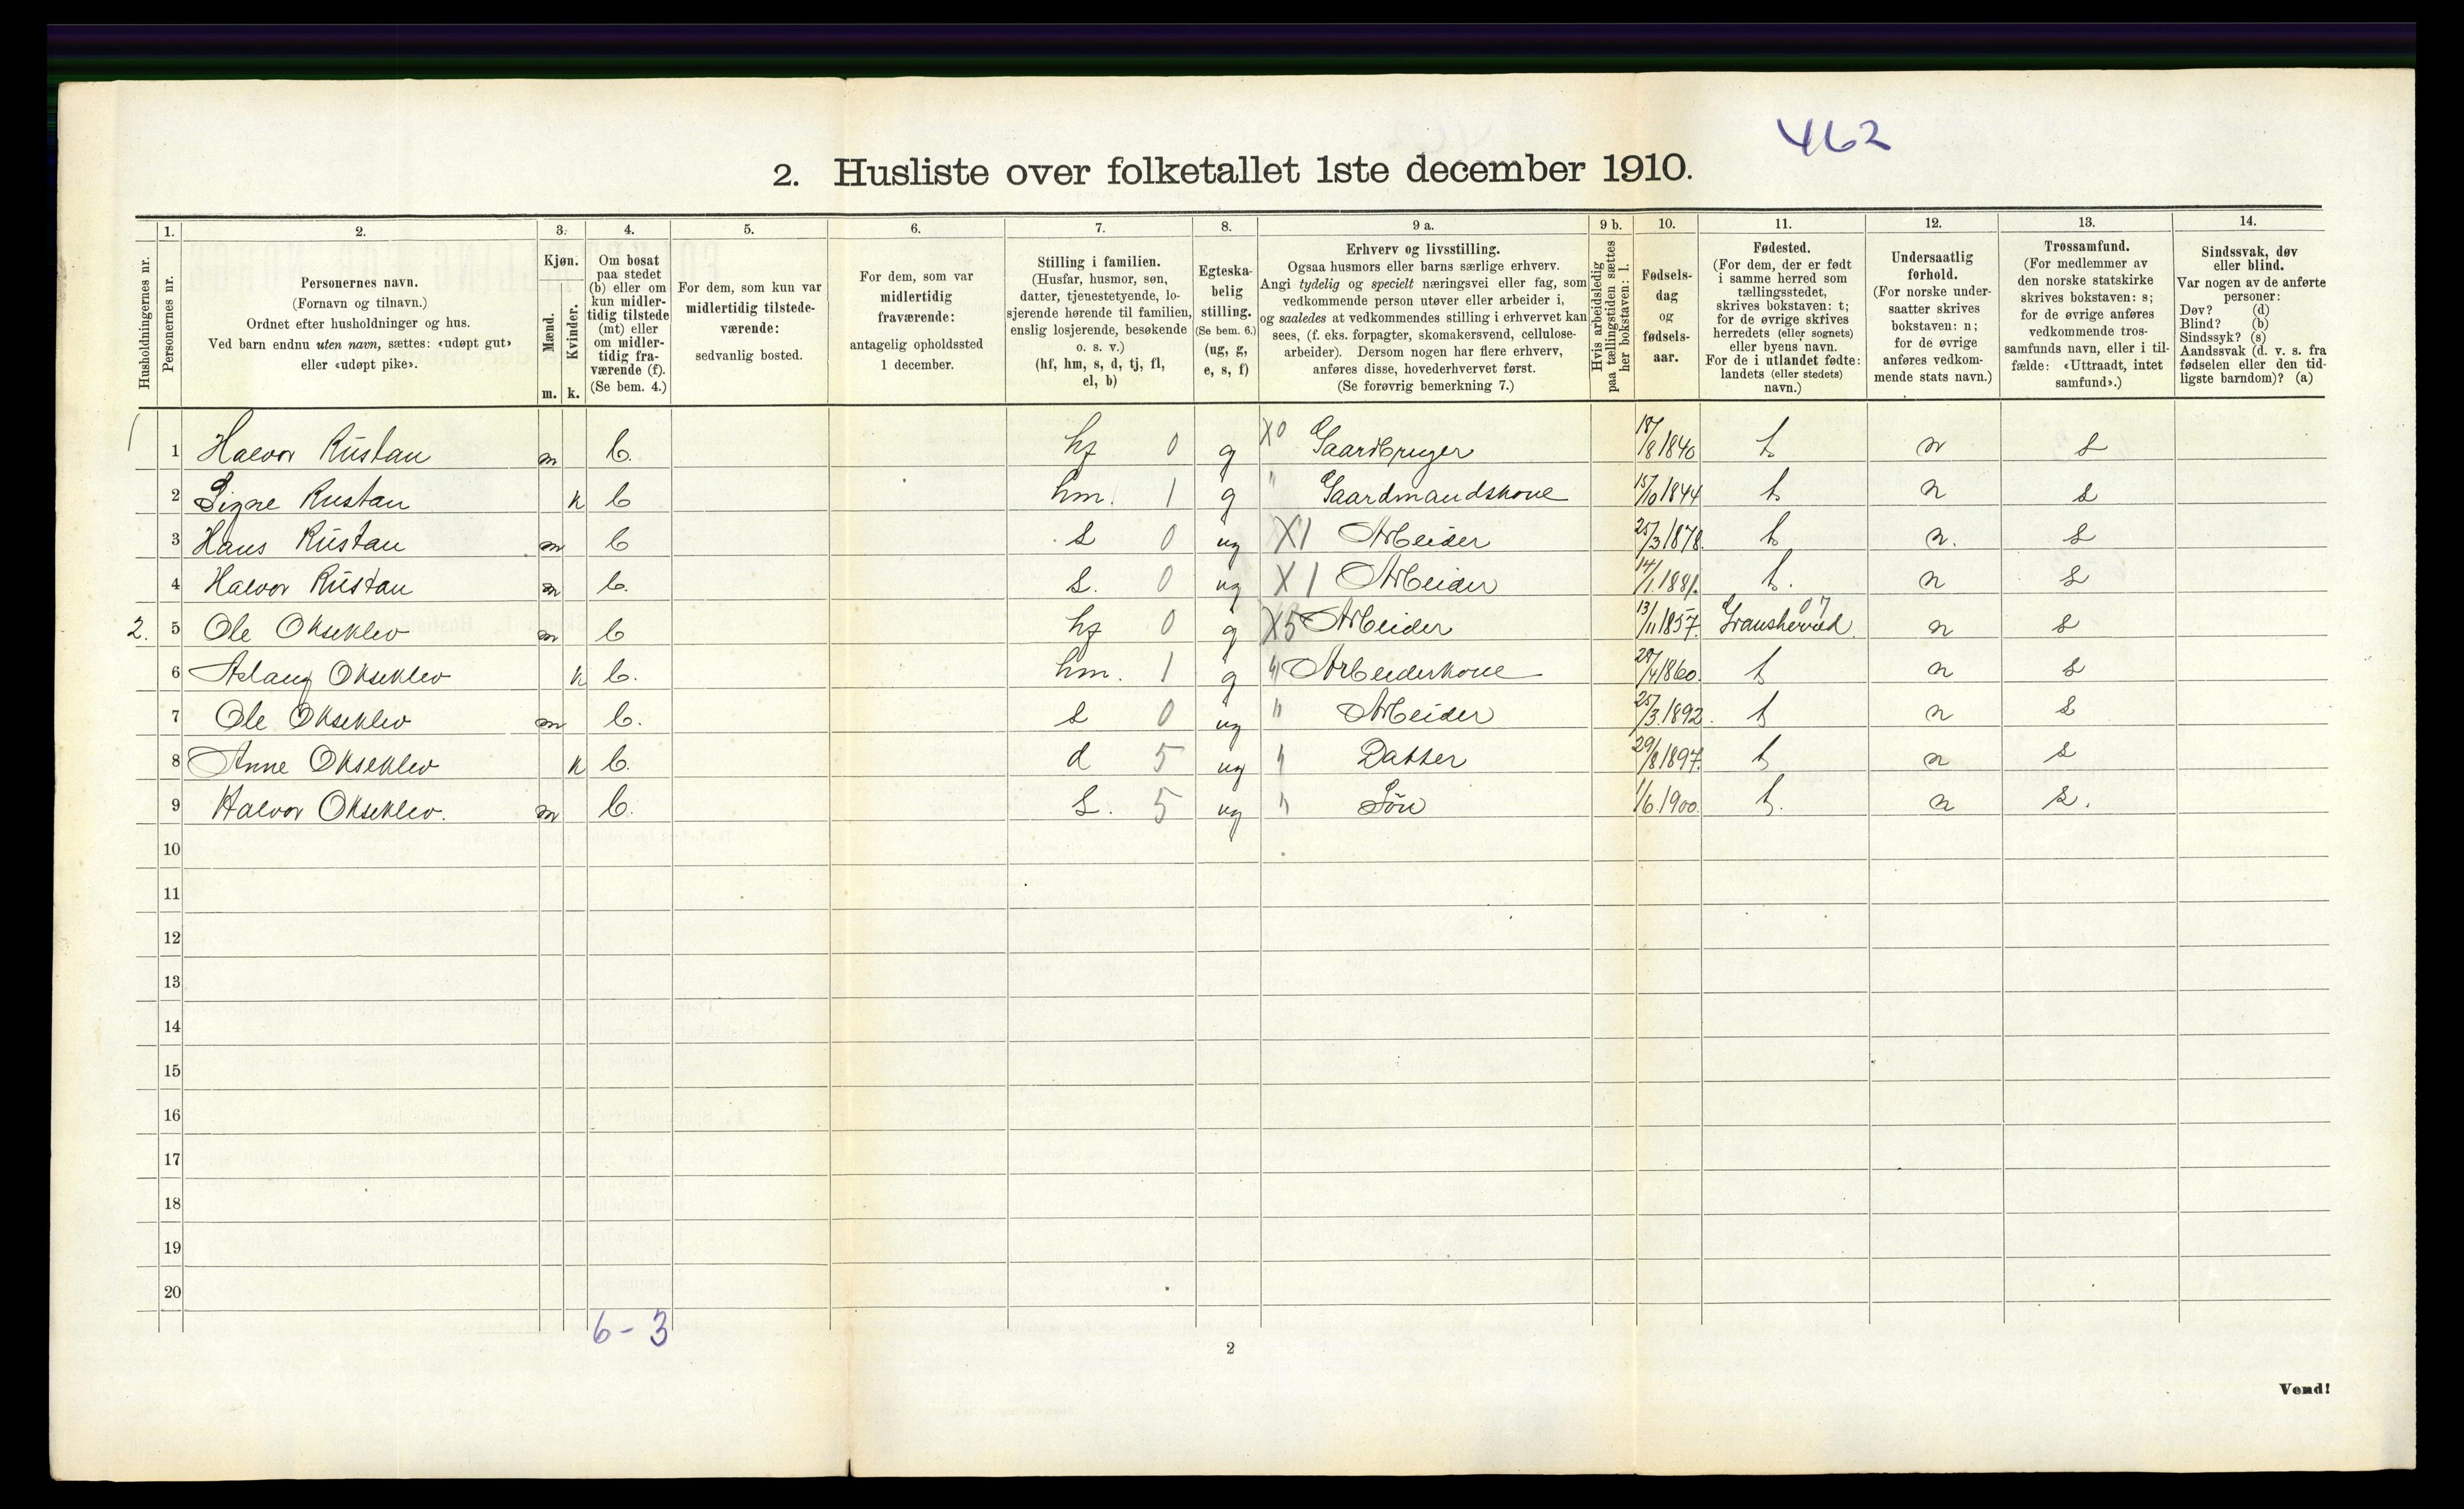 462
2. Husliste over folketallet 1ste december 1910.
Husholdningernes nr.
1.
Personernes nr.
2.
Personernes navn.
(Fornavn og tilnavn.)
Ordnet efter husholdninger og hus.
Ved barn endnu uten navn, sættes: «udøpt gut»
eller «udøpt pike».
3.
Kjøn.
Mænd.
Kvinder.
m. k.
4.
Om bosat
paa stedet
(b) eller om
kun midler-
tidig tilstede
(mt) eller
om midler-
tidig fra-
værende (f).
(Se bem. 4.)
5.
For dem, som kun var
midlertidig tilstede-
værende:
sedvanlig bosted.
6.
For dem, som var
midlertidig
fraværende:
antagelig opholdssted
1 december.
7.
Stilling i familien.
(Husfar, husmor, søn,
datter, tjenestetyende, lo-
sjerende hørende til familien,
enslig losjerende, besøkende
o. s. v.)
(hf, hm, s, d, tj, fl,
el, b)
8.
Egteska-
belig
stilling.
(Se bem. 6.)
(ug, g,
e, s, f)
9 a.
Erhverv og livsstilling.
Ogsaa husmors eller barns særlige erhverv.
Angi tydelig og specielt næringsvei eller fag, som
vedkommende person utøver eller arbeider i,
og saaledes at vedkommendes stilling i erhvervet kan
sees, (f. eks. forpagter, skomakersvend, cellulose-
arbeider). Dersom nogen har flere erhverv,
anføres disse, hovederhvervet først.
(Se forøvrig bemerkning 7.)
9 b.
Hvis arbeidsledig
paa tællingstiden sættes
her bokstaven: l.
10.
Fødsels-
dag
og
fødsels-
aar.
11.
Fødested.
(For dem, der er født
i samme herred som
tællingsstedet,
skrives bokstaven: t;
for de øvrige skrives
herredets (eller sognets)
eller byens navn.
For de i utlandet fødte:
landets (eller stedets)
navn.)
12.
Undersaatlig
forhold.
(For norske under-
saatter skrives
bokstaven: n;
for de øvrige
anføres vedkom-
mende stats navn.)
13.
Trossamfund.
(For medlemmer av
den norske statskirke
skrives bokstaven: s;
for de øvrige anføres
vedkommende tros-
samfunds navn, eller i til-
fælde: «Uttraadt, intet
samfund».)
14.
Sindssvak, døv
eller blind.
Var nogen av de anførte
personer:
Døv? (d)
Blind? (b)
Sindssyk? (s)
Aandssvak (d. v. s. fra
fødselen eller den tid-
ligste barndom)? (a)
1 1 Halvor Rustan m b. hf 0 g X0 Gaardbruger 18/8 1840 t n s
2 Signe Rustan k b hm. 1 g " Gaardmandskone 15/10 1844 t. n s
3 Hans Rustan m b s 0 ug X1 Arbeider 25/3 1878. t n. s
4 Halvor Rustan m b. s. 0 ug X1 Arbeider 14/1. 1881. t. n s
2. 5 Ole Okseklev m b hf 0 g X5 Arbeider 13/11 1857. Gransherred 07 n s
6 Aslaug Okseklev k b. hm. 1 g " Arbeiderkone 28/4 1860. t n s
7 Ole Okseklev m b. s 0 ug " Arbeider 25/3. 1892. t n s
8 Anne Okseklev k b. d 5 ug " Datter 29/8 1897. t n s
9 Halvor Okseklev. m b. s. 5 ug " Søn 1/6. 1900. t. n s.
10
11
12
13
14
15
16
17
18
19
20
6 - 3
2
Vend!